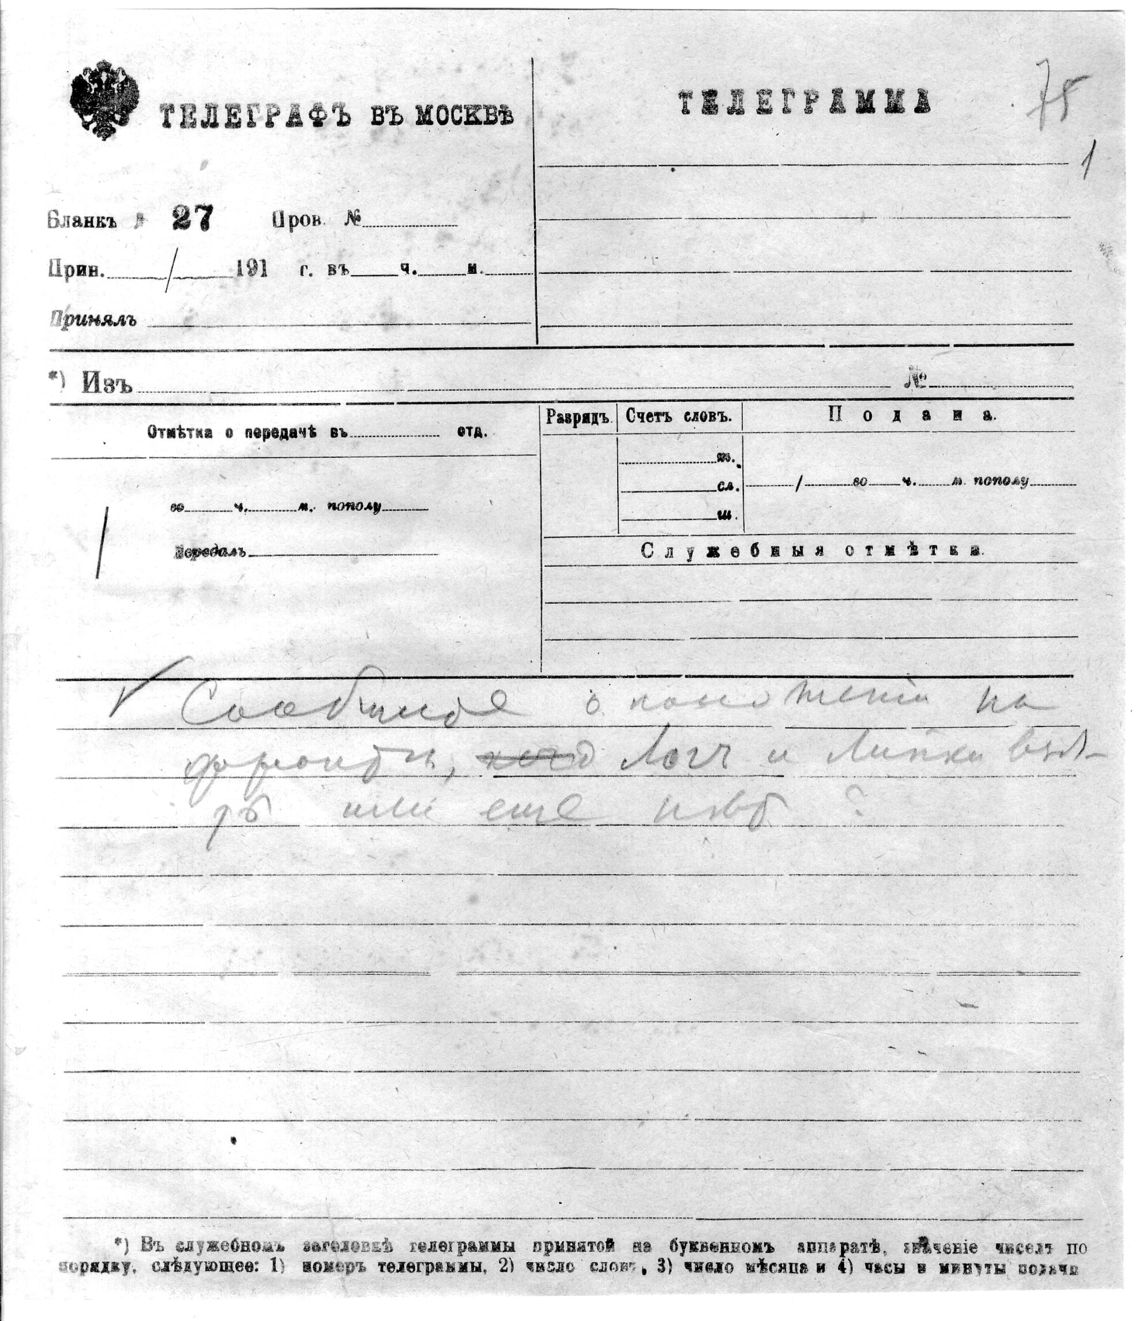 ТЕЛЕГРАФЪ ВЪ МОСКВѢ
ТЕЛЕГРАММА
75
1
Бланкъ № 27 Пров. №
Прин. / 191 г. въ ч. м.
Принялъ
*) Изъ №
Отмѣтка о передачѣ въ отд.
во ч. м. пополу
Передалъ
Разрядъ. Счетъ словъ. Подана.
тл.
сл.
ш.
/ во ч. м. пополу
Служебныя отмѣтки.
о положении на
фронте, и Липки взя-
ты или еще нет ?
*) Въ служебномъ заголовкѣ телеграммы принятой на буквенномъ аппаратѣ, значеніе чиселъ по
порядку, слѣдующее: 1) номеръ телеграммы, 2) число словъ, 3) число мѣсяца и 4) часы и минуты подачи